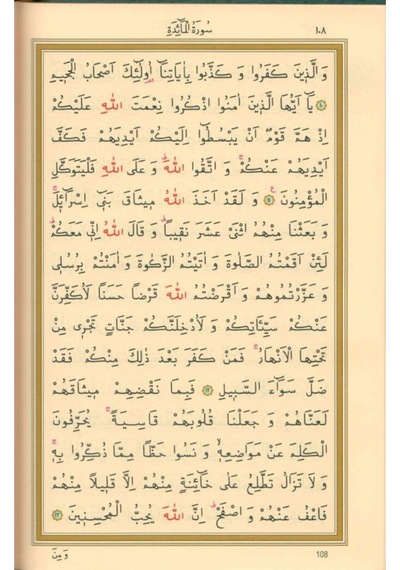 ١٠٨ سُورَةُ الْمَٓائِدَةِ
وَالَّذ۪ينَ كَفَرُوا وَكَذَّبُوا بِاٰيَاتِنَٓا اُو۬لٰٓئِكَ اَصْحَابُ الْجَح۪يمِ
﴿١٠﴾ يَٓا اَيُّهَا الَّذ۪ينَ اٰمَنُوا اذْكُرُوا نِعْمَتَ اللّٰهِ عَلَيْكُمْ
اِذْ هَمَّ قَوْمٌ اَنْ يَبْسُطُٓوا اِلَيْكُمْ اَيْدِيَهُمْ فَكَفَّ
اَيْدِيَهُمْ عَنْكُمْۚ وَاتَّقُوا اللّٰهَۜ وَعَلَى اللّٰهِ فَلْيَتَوَكَّلِ
الْمُؤْمِنُونَ۟ ﴿١١﴾ وَلَقَدْ اَخَذَ اللّٰهُ م۪يثَاقَ بَن۪ٓي اِسْرَٓائ۪لَۚ
وَبَعَثْنَا مِنْهُمُ اثْنَيْ عَشَرَ نَق۪يبًاۜ وَقَالَ اللّٰهُ اِنّ۪ي مَعَكُمْۜ
لَئِنْ اَقَمْتُمُ الصَّلٰوةَ وَاٰتَيْتُمُ الزَّكٰوةَ وَاٰمَنْتُمْ بِرُسُل۪ي
وَعَزَّرْتُمُوهُمْ وَاَقْرَضْتُمُ اللّٰهَ قَرْضًا حَسَنًا لَاُكَفِّرَنَّ
عَنْكُمْ سَيِّـَٔاتِكُمْ وَلَاُدْخِلَنَّكُمْ جَنَّاتٍ تَجْر۪ي مِنْ
تَحْتِهَا الْاَنْهَارُۚ فَمَنْ كَفَرَ بَعْدَ ذٰلِكَ مِنْكُمْ فَقَدْ
ضَلَّ سَوَٓاءَ السَّب۪يلِ ﴿١٢﴾ فَبِمَا نَقْضِهِمْ م۪يثَاقَهُمْ
لَعَنَّاهُمْ وَجَعَلْنَا قُلُوبَهُمْ قَاسِيَةًۚ يُحَرِّفُونَ
الْكَلِمَ عَنْ مَوَاضِعِه۪ۙ وَنَسُوا حَظًّا مِمَّا ذُكِّرُوا بِه۪ۚ
وَلَا تَزَالُ تَطَّلِعُ عَلٰى خَٓائِنَةٍ مِنْهُمْ اِلَّا قَل۪يلًا مِنْهُمْ
فَاعْفُ عَنْهُمْ وَاصْفَحْۜ اِنَّ اللّٰهَ يُحِبُّ الْمُحْسِن۪ينَ ﴿١٣﴾
وَمِنَ 108